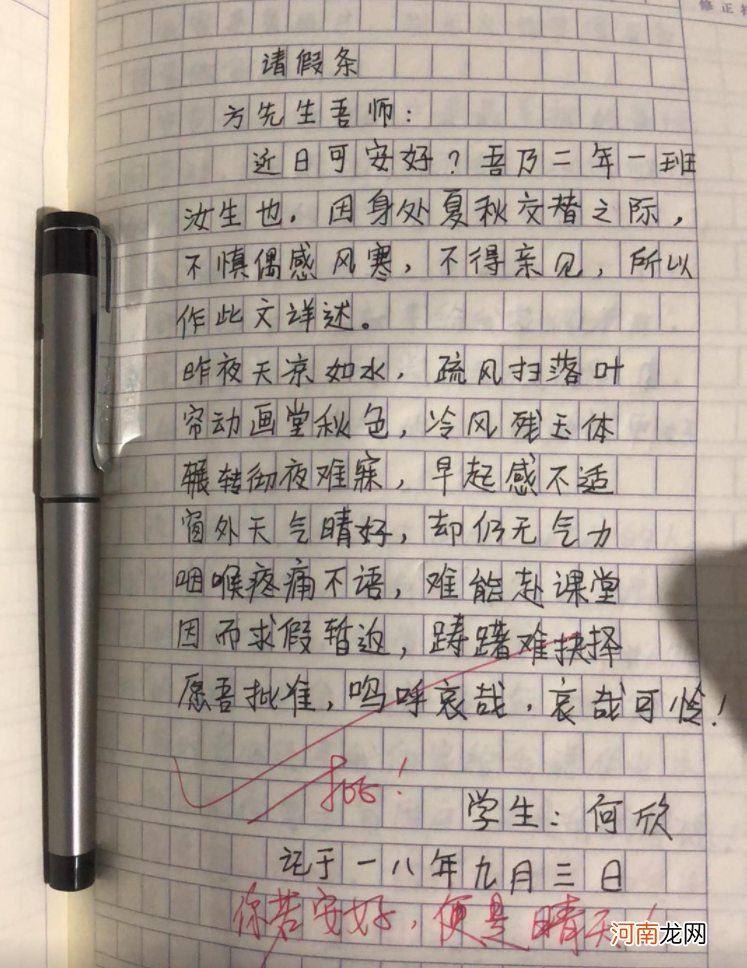 修正
请假条
方先生吾师：
近日可安好？吾乃二年一班
汝生也，因身处夏秋交替之际，
不慎偶感风寒，不得亲见，所以
作此文详述。
昨夜天凉如水，疏风扫落叶
帘动画堂秋色，冷风残玉体
辗转彻夜难寐，早起感不适
窗外天气晴好，却仍无气力
咽喉疼痛不语，难能赴课堂
因而求假暂返，踌躇难抉择
愿吾批准，呜呼哀哉，哀哉可怜！
批！
学生：何欣
记于一八年九月三日
你若安好，便是晴天！
河南龙网